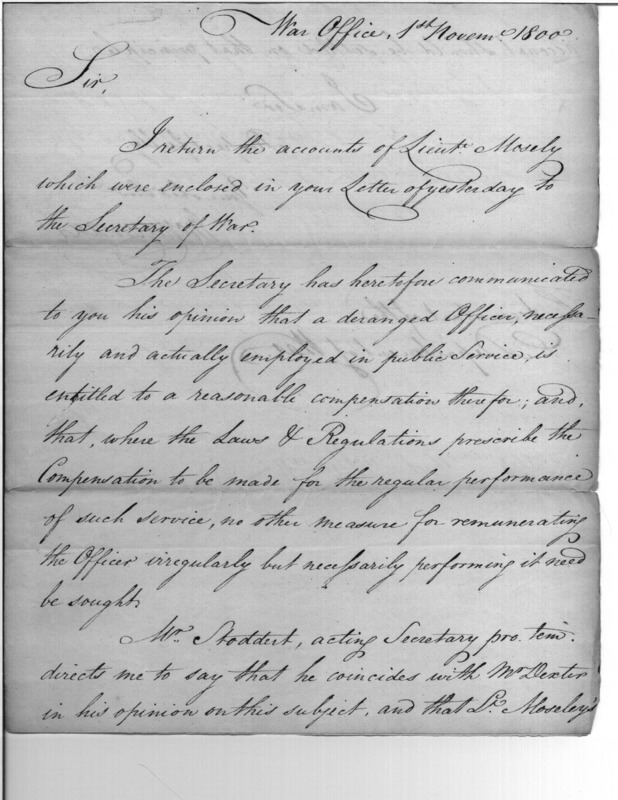 War Office, 1st Novemr. 1800
Sir,
I return the accounts of Lieut. Mosely
which were enclosed in your Letter of yesterday to
the Secretary of War.
The Secretary has heretofore communicated
to you his opinion that a deranged Officer, necessa-
rily and actually employed in public Service, is
entitled to a reasonable compensation therefor; and,
that, where the Laws & Regulations prescribe the
Compensation to be made for the regular performance
of such service, no other measure for remunerating
the Officer irregularly but necessarily performing it need
be sought.
Mr. Stoddert, acting Secretary pro. tem.
directs me to say that he coincides with Mr Dexter
in his opinion on this subject, and that Lt. Moseley's